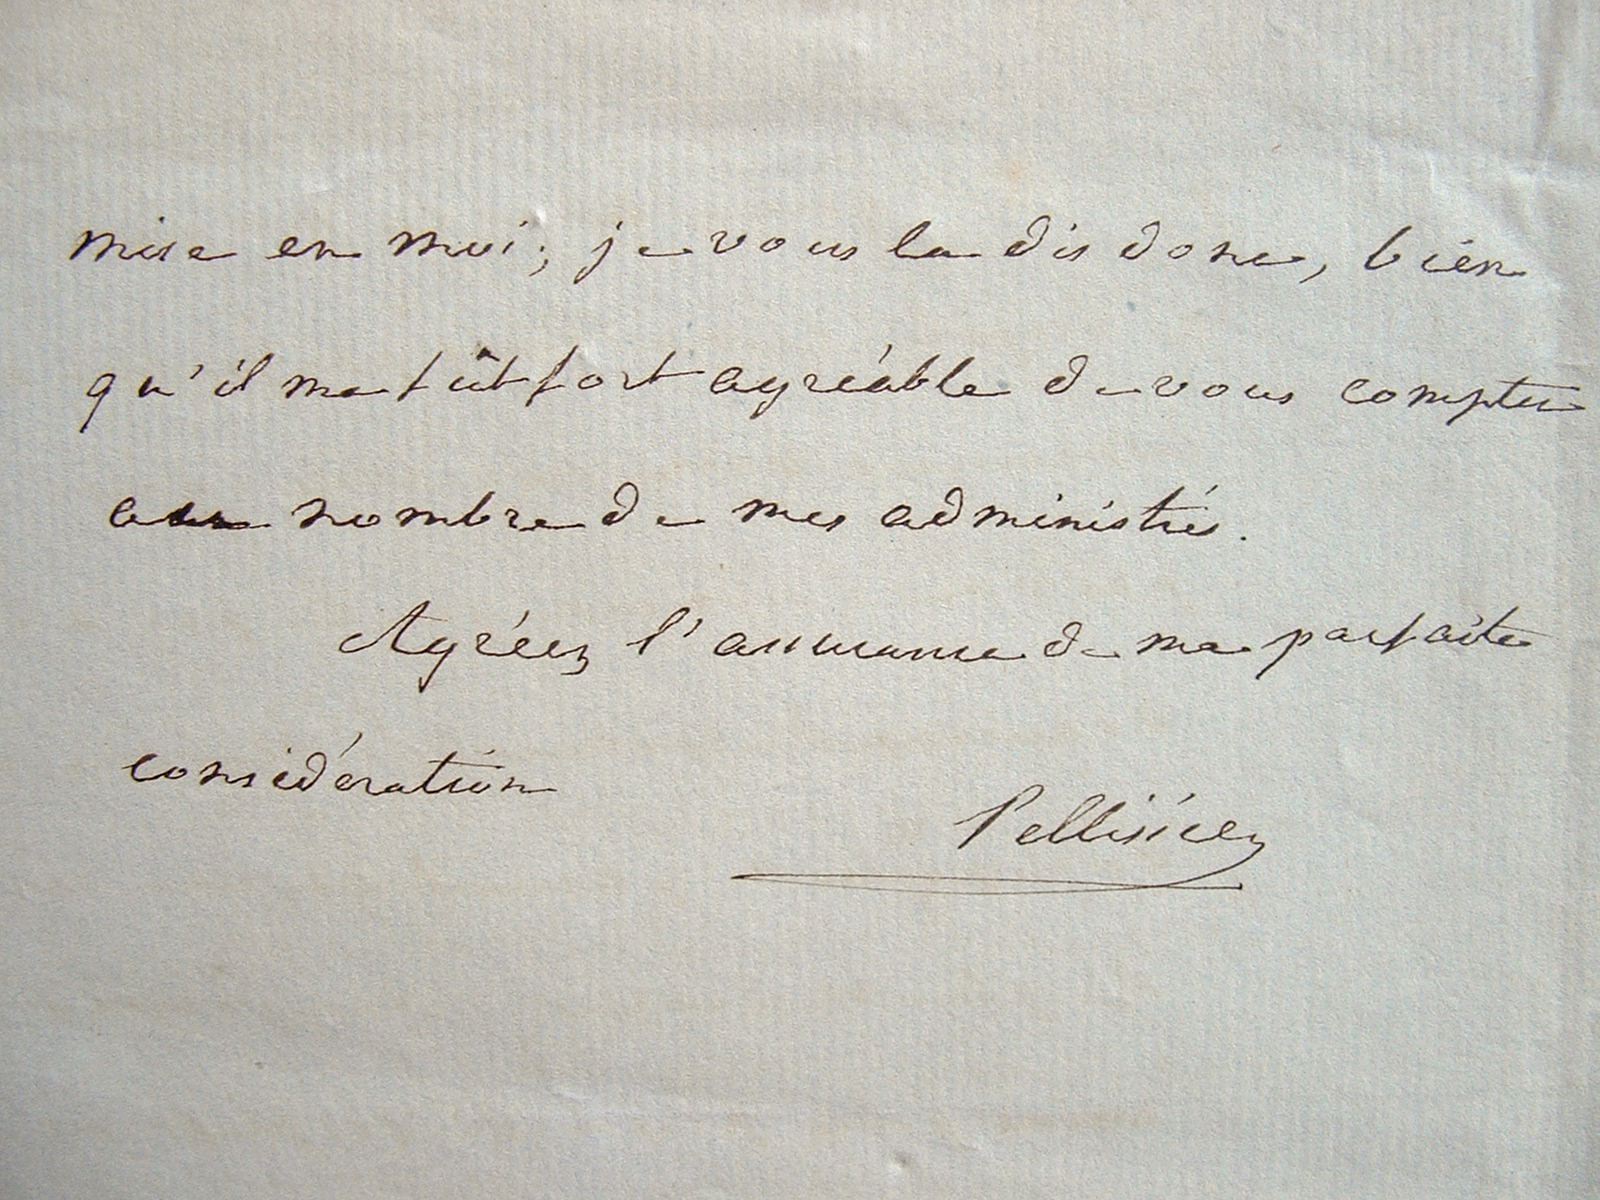 mise en moi; je vous la dis donc, bien
qu'il me fût fort agréable de vous compter
au nombre de mes administrés.
Agréez l'assurance de ma parfaite
considération
Pellissier